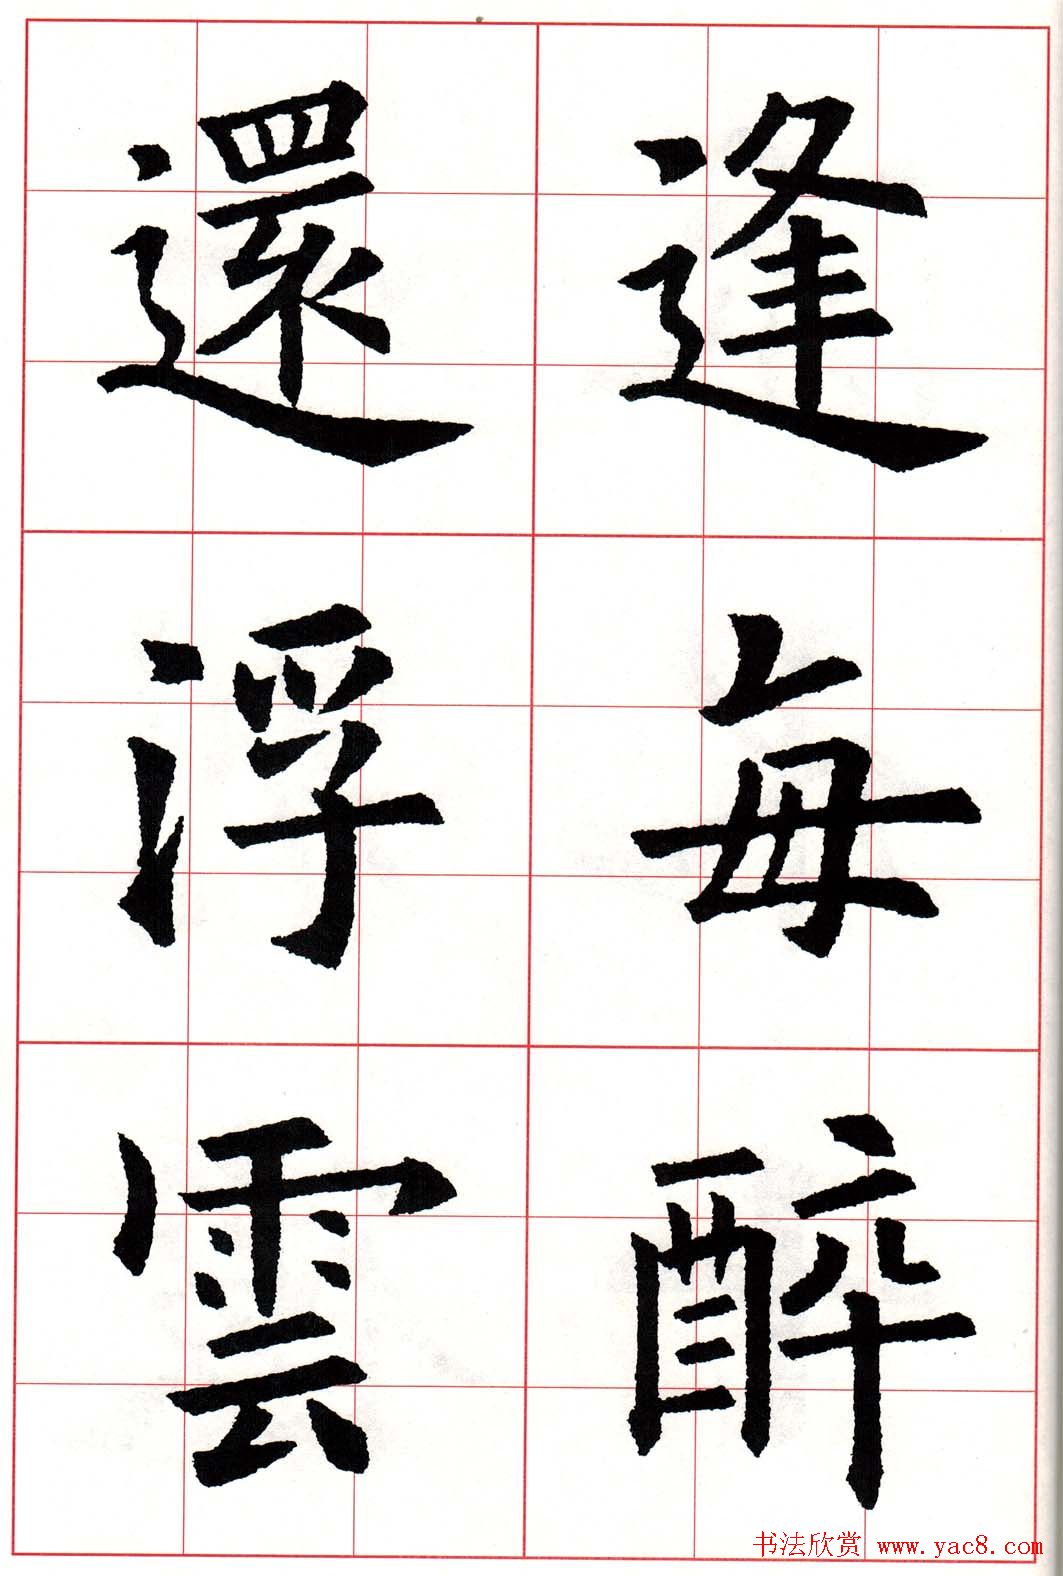 逢每醉
還浮雲
书法欣赏 www.yac8.com